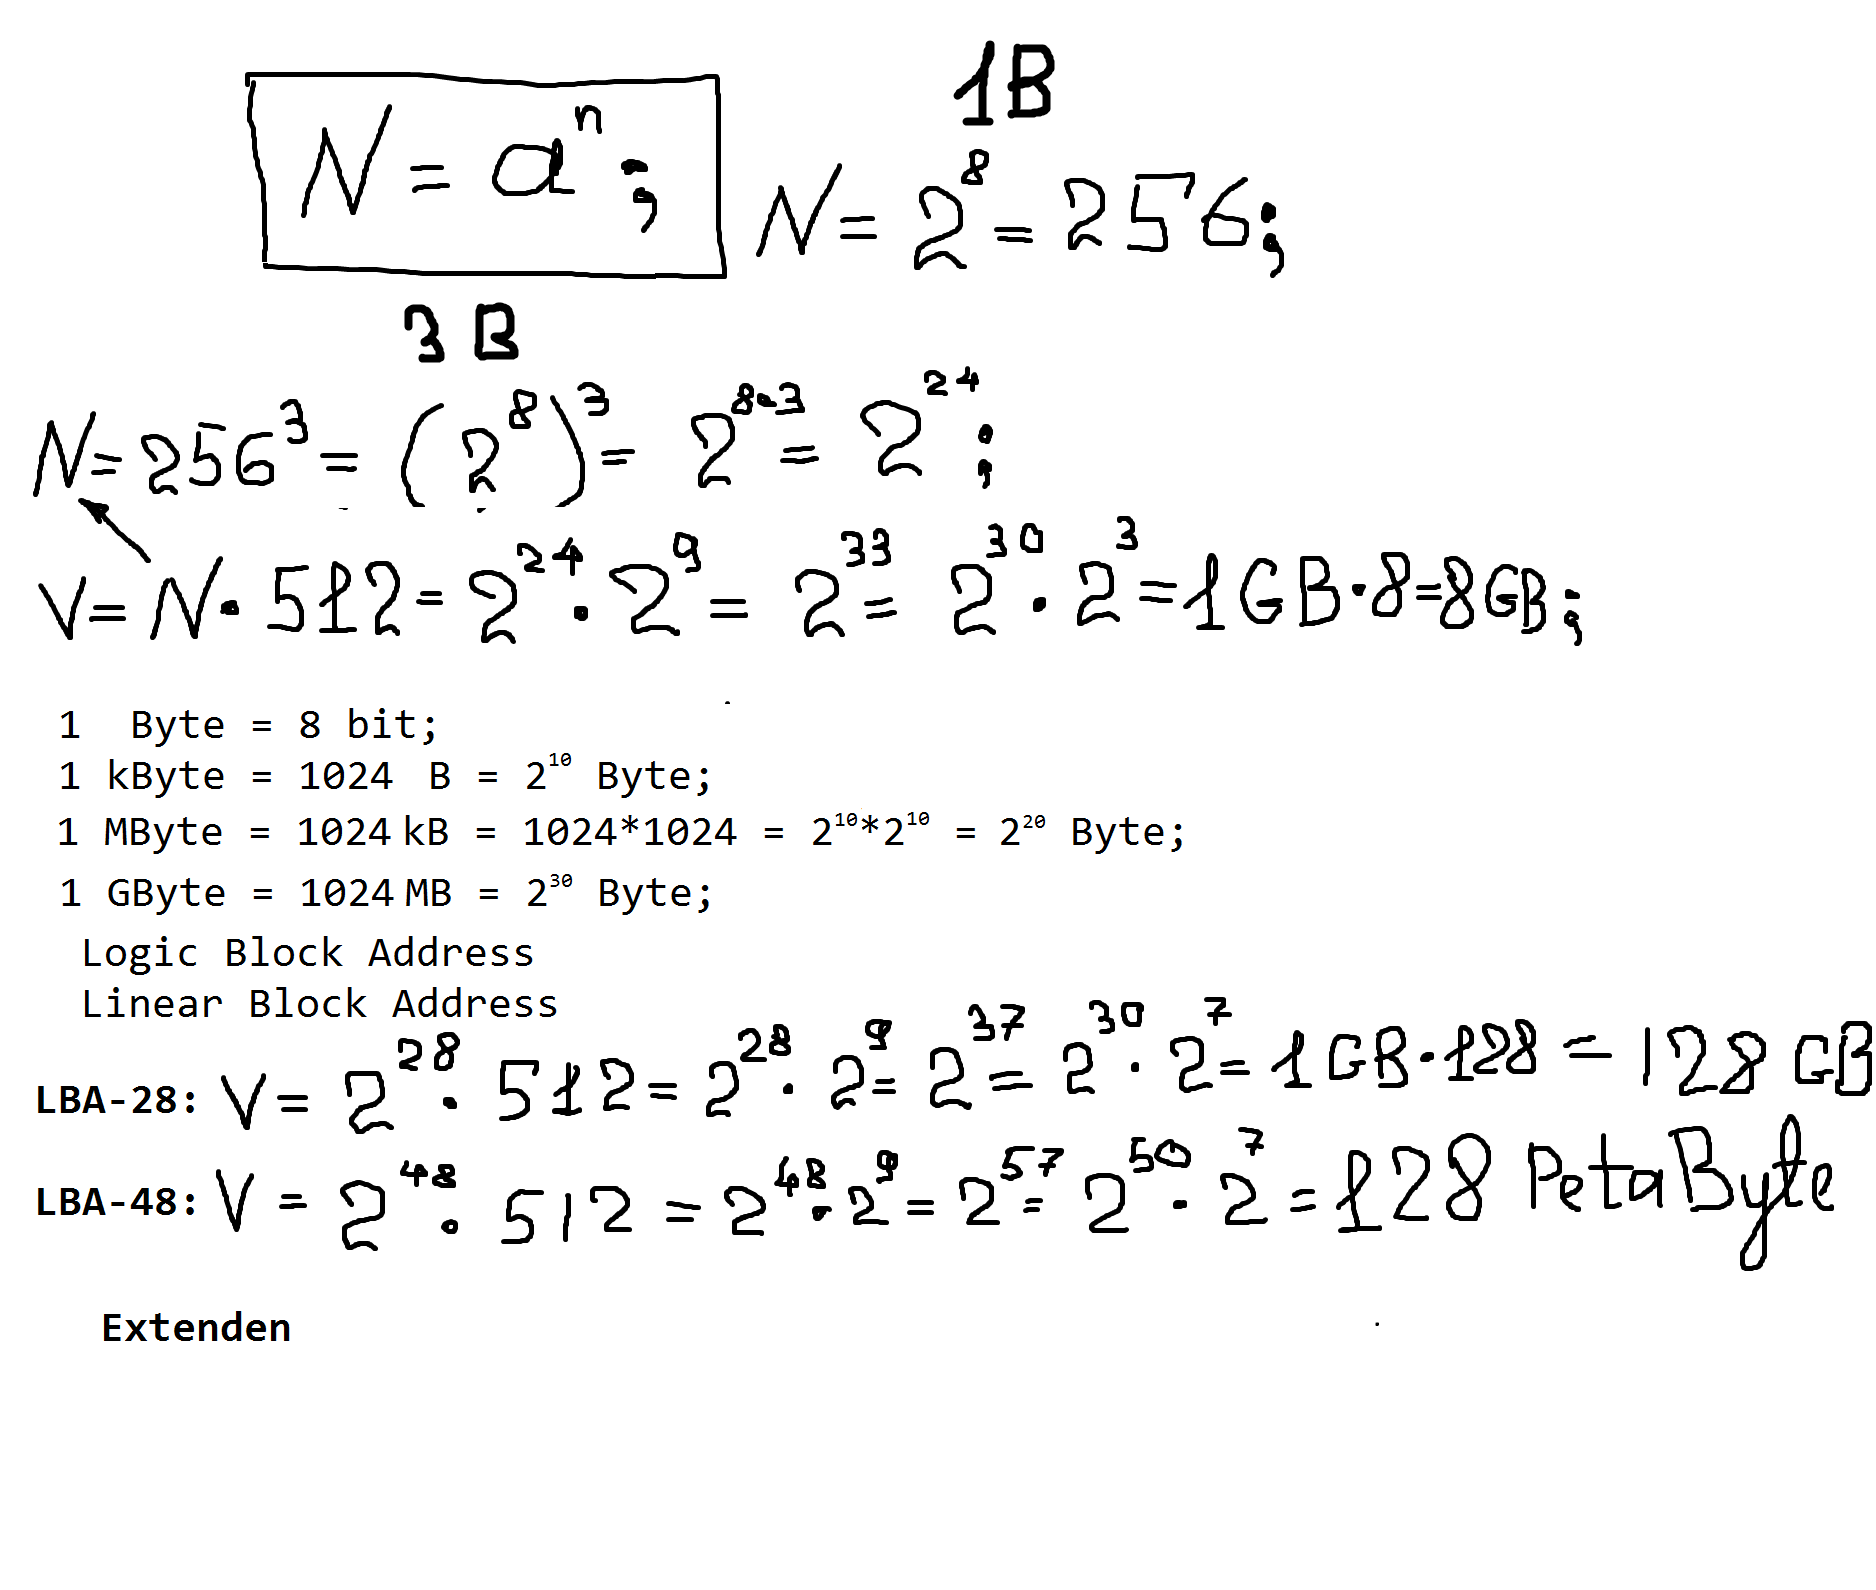 1B
N = aⁿ;
N = 2⁸ = 256;
3 B
N = 256³ = (2⁸)³ = 2⁸·³ = 2²⁴;
V = N · 512 = 2²⁴ · 2⁹ = 2³³ = 2³⁰ · 2³ = 1GB·8=8GB;
1 Byte = 8 bit;
1 kByte = 1024 B = 2¹⁰ Byte;
1 MByte = 1024 kB = 1024*1024 = 2¹⁰*2¹⁰ = 2²⁰ Byte;
1 GByte = 1024 MB = 2³⁰ Byte;
Logic Block Address
Linear Block Address
LBA-28: V = 2²⁸ · 512 = 2²⁸ · 2⁹ = 2³⁷ = 2³⁰ · 2⁷ = 1GB·128 = 128 GB
LBA-48: V = 2⁴⁸ · 512 = 2⁴⁸ · 2⁹ = 2⁵⁷ = 2⁵⁰ · 2⁷ = 128 PetaByte
Extenden